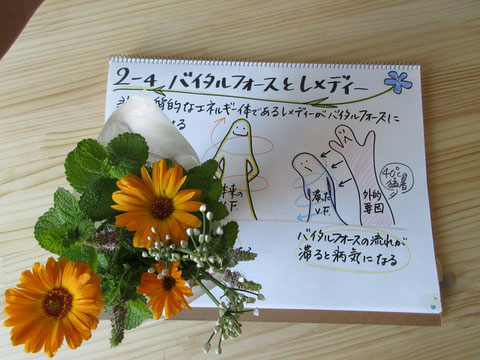 2-4 バイタルフォースとレメディー
質的なエネルギー体であるレメディーがバイタルフォースに
なる
本来の
V.F.
滞った
V.F.
外的
要因
40℃
猛暑
バイタルフォースの流れが
滞ると病気になる